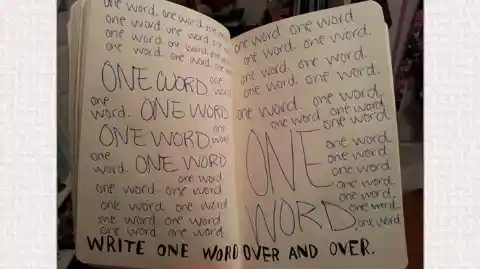 one word. one word. one
one word. one word one word.
one word. one word. one
one word. one word. one
ONE WORD one
word.
one
word. ONE WORD
ONE WORD one
word
one
word. ONE WORD
one word. one word.
one word one word
one word one word
one word. one word
one word one word.
one word one word
one word. one word.
one word. one word.
one word. one word.
one word. one word.
one word one word
one word
ONE
WORD
one word
one word
one word
one word
one word
one word
one word
WRITE ONE WORD OVER AND OVER.